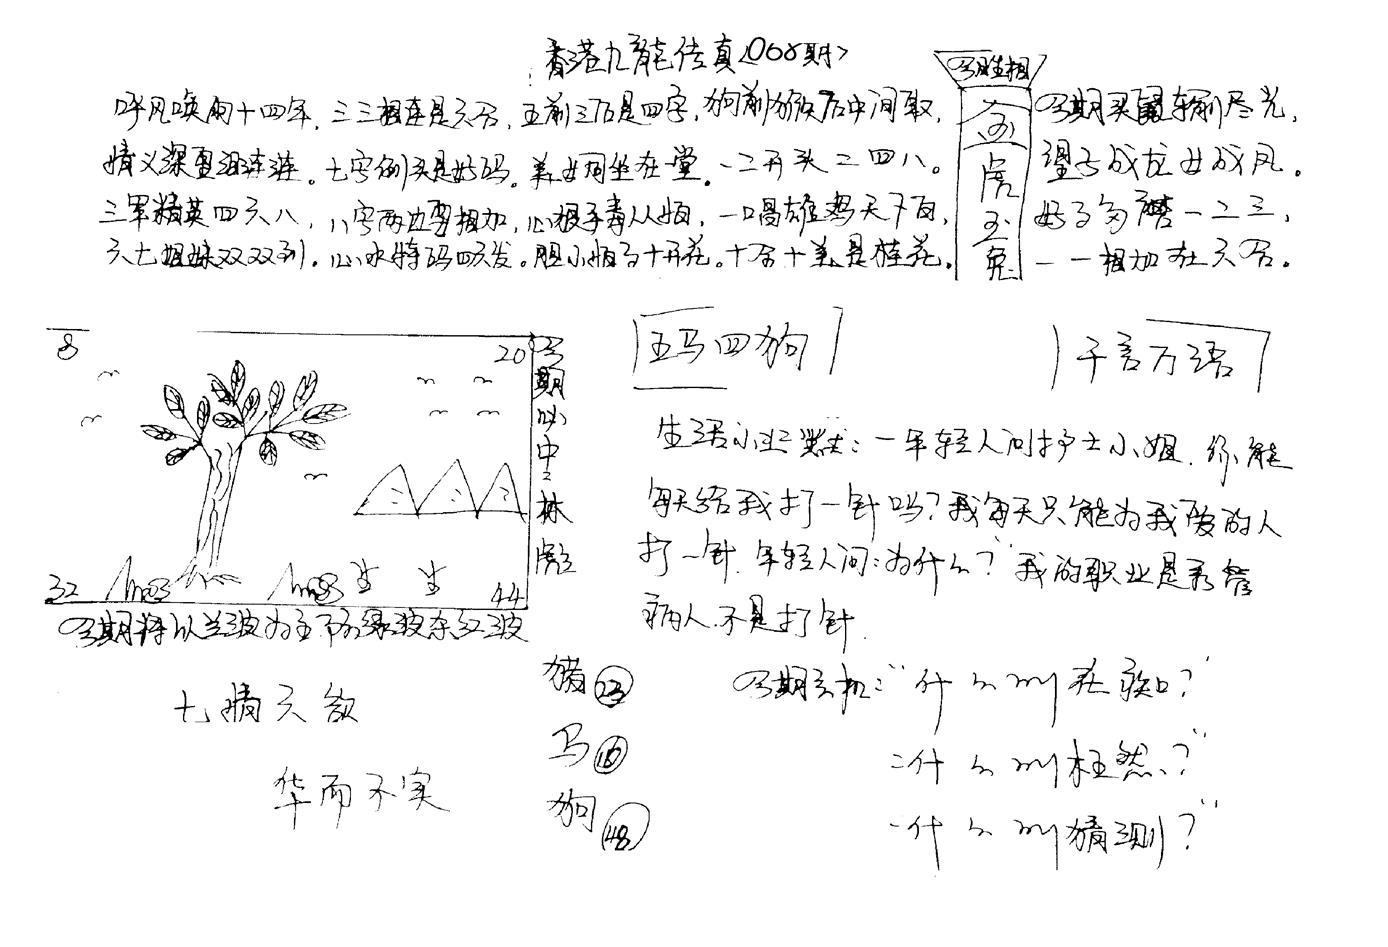 香港九龍传真<068期>
呼风唤雨十四年，三三相连是六合，五前三后是四字，狗前猴后中间取，
情义深重泪连涟。七字倒头是好码。美女同坐在堂。一二开头二四八。
三军精英四六八，八字两边要相加，心狠手毒人人怕，一唱雄鸡天下白，
六七姐妹双双到。心水特码四六发。胆小怕事十开花。十合十美是桂花。
今期生相
六合虎玉兔
今期买鼠输尽光，
望子成龙女成凤。
好事多磨一二三，
一一相加在六合。
8
20
今期必中三林虎
32
44
今期特以兰波为主下为绿波东红波
五马四狗
千言万语
生活小幽默：一年轻人问护士小姐，你能
每天给我打一针吗？我每天只能为我爱的人
打一针，年轻人问：为什么？"我的职业是看管
病人，不是打针
七情六欲
华而不实
猪 23
马 16
狗 48
今期玄机："什么叫在家？"
"什么叫枉然？"
"什么叫猜测？"